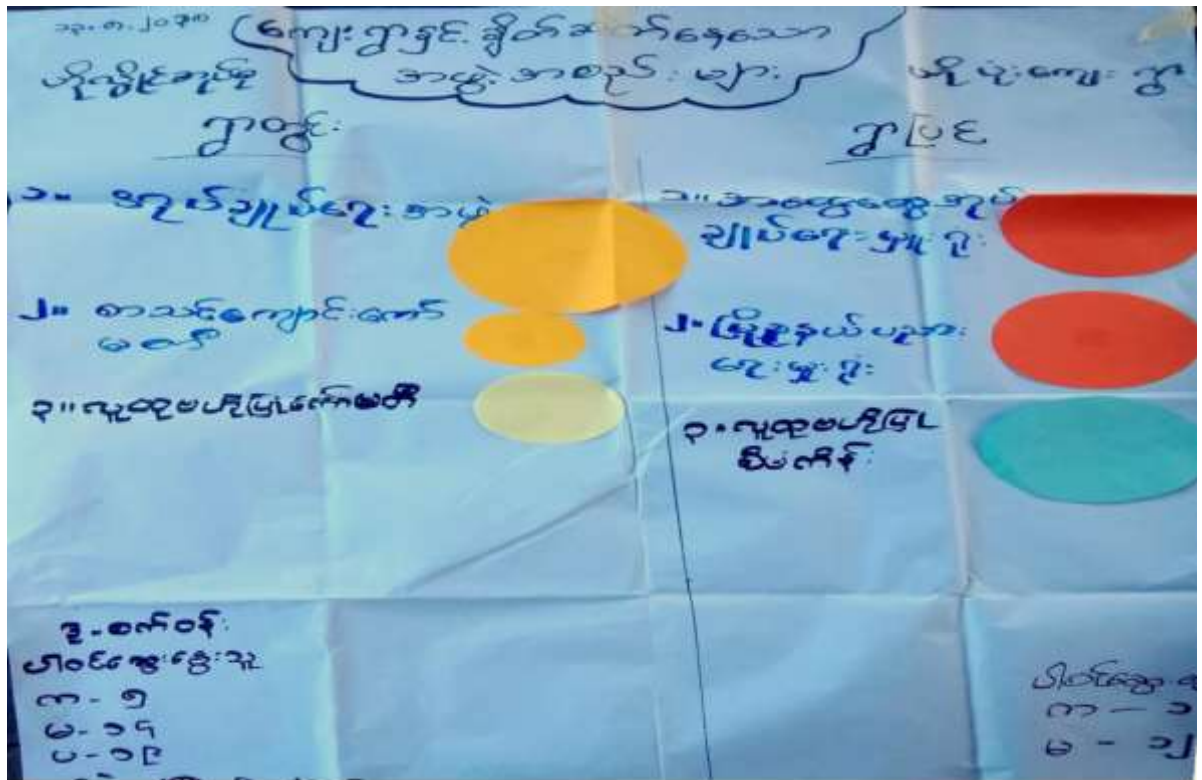 ကျေးရွာနှင့် ချိတ်ဆက်နေသော
အဖွဲ့အစည်းများ
ကျေးရွာ
ရွာတွင်း
ရွာပြင်
၁။ အုပ်ချုပ်ရေးအဖွဲ့
၂။ စာသင်ကျောင်းကော်
မတီ
၃။ လူထုဗဟိုပြုကော်မတီ
၁။ အထွေထွေအုပ်
ချုပ်ရေးမှူးရုံး
၂။ မြို့နယ်ပညာ
ရေးမှူးရုံး
၃။ လူထုဗဟိုပြု
စီမံကိန်း
ဒူ-စက်ဝန်း
ပါဝင်ဆွေးနွေးသူ
က - ၅
မ - ၁၄
ပ - ၁၉
ပါဝင်ဆွေး
က - ၁
မ - ၁၂